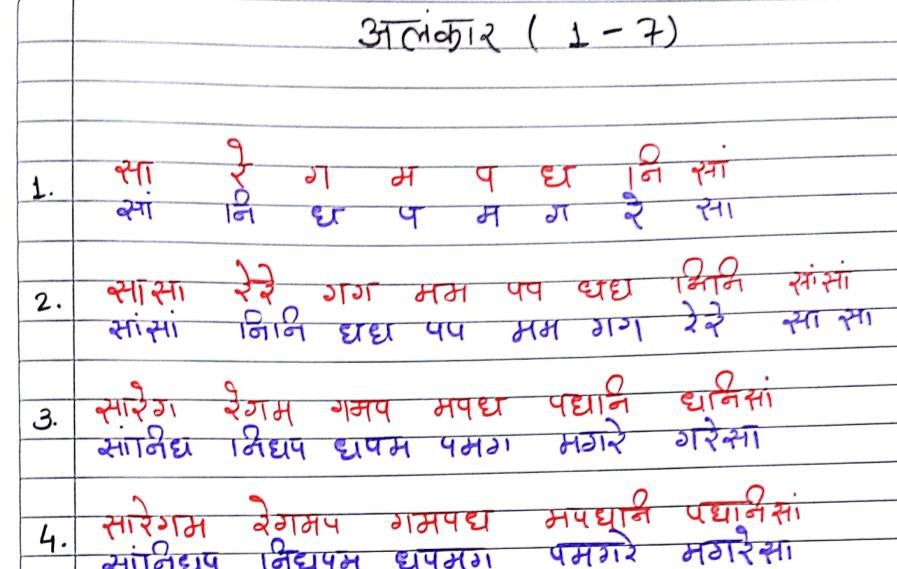 अलंकार ( 1 - 7 )
1. सा रे ग म प ध नि सां
सां नि ध प म ग रे सा
2. सासा रेरे गग मम पप धध निनि सांसां
सांसां निनि धध पप मम गग रेरे सा सा
3. सारेग रेगम गमप मपध पधनि धनिसां
सांनिध निधप धपम पमग मगरे गरेसा
4. सारेगम रेगमप गमपध मपधनि पधनिसां
सांनिधप निधपम धपमग पमगरे मगरेसा